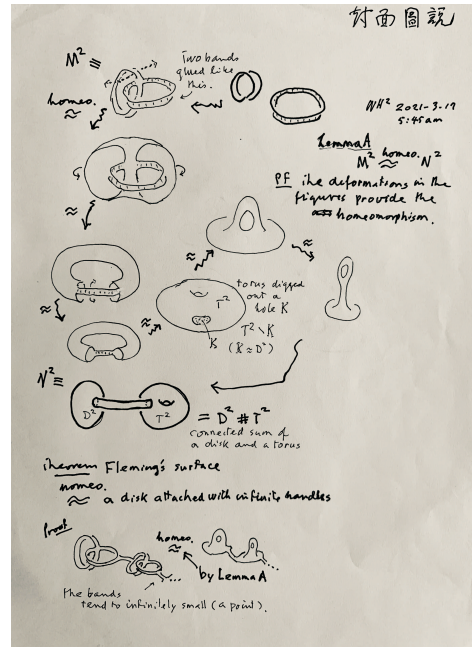 封面圖說
M² ≡
Two bands
glued like
this.
homeo.
≈
WH² 2021-3-17
5:45am
Lemma A
M² homeo. ≈ N²
Pf the deformations in the
figures provide the
homeomorphism.
≈
≈
≈
≈
≈
≈
torus digged
out a
hole K
T²
K
T² \ K
(K ≈ D²)
N² ≡
D²
T²
= D² # T²
connected sum of
a disk and a torus
Theorem Fleming's surface
homeo.
≈ a disk attached with infinite handles
Proof
homeo.
≈
by Lemma A
...
...
the bands
tend to infinitely small (a point).